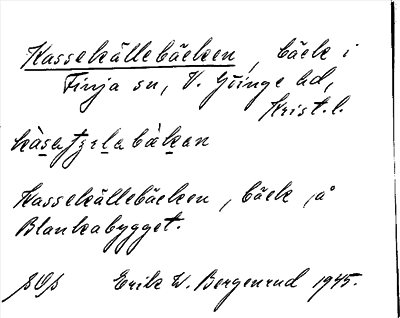 Kassekällebäcken, bäck i
Finja sn, V. Göinge hd,
Krist. l.
Kassekällebäcken, bäck, å
Blankabygget.
Erik W. Bergenrud 1945.